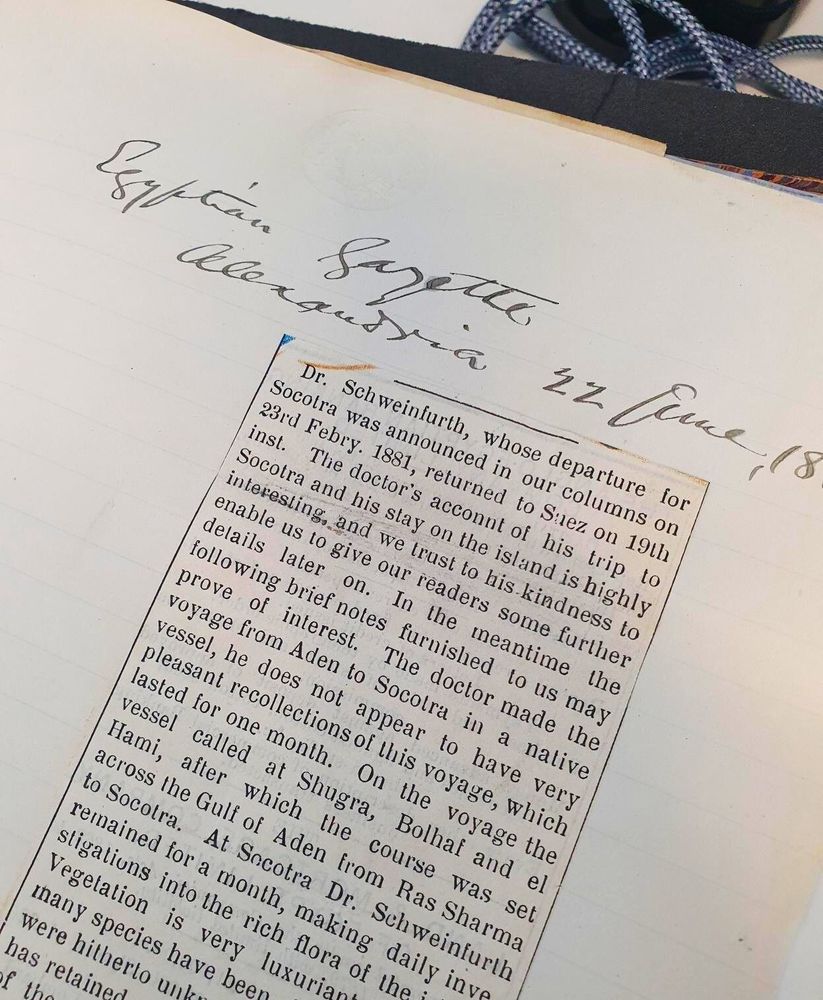 Egyptian Gazette
Alexandria 22 June, 18
Dr. Schweinfurth, whose departure for
Socotra was announced in our columns on
23rd Febry. 1881, returned to Suez on 19th
inst. The doctor's account of his trip to
Socotra and his stay on the island is highly
interesting, and we trust to his kindness to
enable us to give our readers some further
details later on. In the meantime the
following brief notes furnished to us may
prove of interest. The doctor made the
voyage from Aden to Socotra in a native
vessel, he does not appear to have very
pleasant recollections of this voyage, which
lasted for one month. On the voyage the
vessel called at Shugra, Bolhaf and el
Hami, after which the course was set
across the Gulf of Aden from Ras Sharma
to Socotra. At Socotra Dr. Schweinfurth
remained for a month, making daily inve
stigations into the rich flora of the
Vegetation is very luxuriant
many species have been
were hitherto
has retained
of the